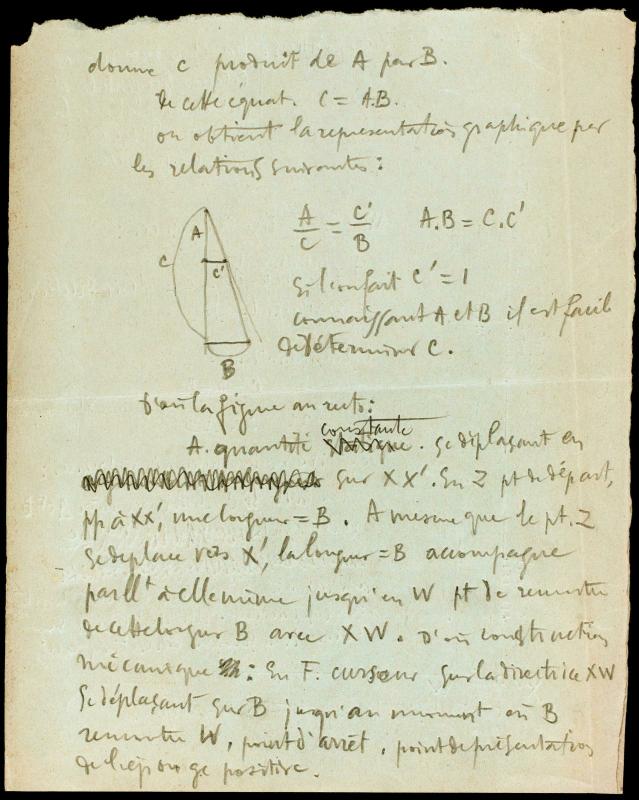 donne C produit de A par B.
de cette équat. C = A.B.
on obtient la representation graphique par
les relations suivantes :
A/C = C'/B    A.B = C.C'
A
C
C'
B
Si l'on fait C' = 1
connaissant A et B il est facile
de déterminer C.
D'où la figure au recto :
constante
A. quantité . se déplaçant en
sur XX'. En Z pt de départ,
pp à XX', une longueur = B. A mesure que le pt. Z
se deplace vers X', la longueur = B accompagne
parllt à elle même jusqu'en W pt de rencontre
de cette longueur B avec XW. D'où construction
mécanique : En F. curseur sur la directrice XW
se déplaçant sur B jusqu'au moment où B
rencontre W, point d'arrêt, point de présentation
de l'éponge positive.